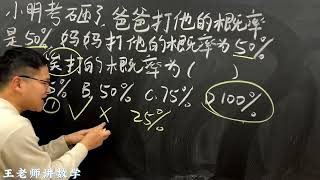 小明考砸了,爸爸打他的概率
是50%,妈妈打他的概率为50%
打的概率为( )
% B.50% C.75% D.100%
① ✓ × 25%
王老师讲数学